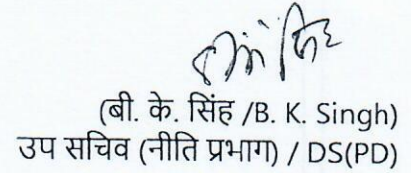 (बी. के. सिंह /B. K. Singh)
उप सचिव (नीति प्रभाग) / DS(PD)